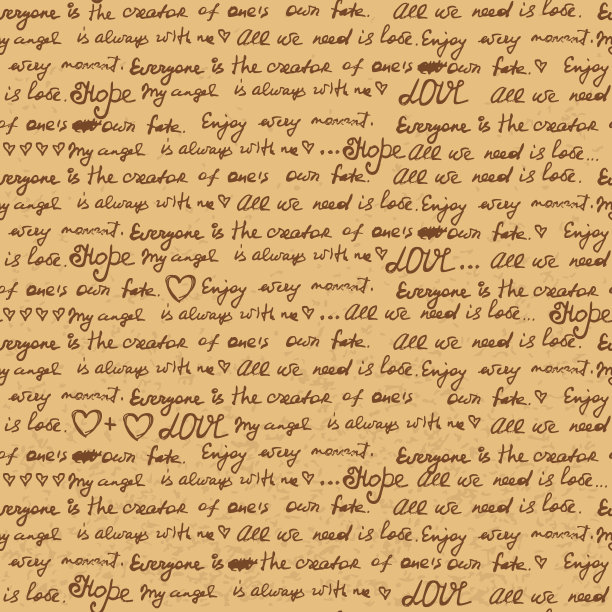 everyone is the creator of one's own fate. All we need is lose. E
My angel is always with me ♡ All we need is lose. Enjoy every moment. M
every moment. Everyone is the creator of one's own fate. ♡ Enjoy
is lose. Hope My angel is always with me ♡ LOVE All we need
of one's own fate. Enjoy every moment. Everyone is the creator
♡♡♡♡ My angel is always with me ♡ ... Hope All we need is lose...
everyone is the creator of one's own fate. All we need is lose. E
My angel is always with me ♡ All we need is lose. Enjoy every moment. M
every moment. Everyone is the creator of one's own fate. ♡ Enjoy
is lose. Hope My angel is always with me ♡ LOVE ... All we need
of one's own fate. ♡ Enjoy every moment. Everyone is the creator
♡♡♡♡ My angel is always with me ♡ ... All we need is lose... Hope
everyone is the creator of one's own fate. All we need is lose. E
My angel is always with me ♡ All we need is lose. Enjoy every moment. M
every moment. Everyone is the creator of one's own fate. ♡ Enjoy
is lose. ♡ + ♡ LOVE My angel is always with me ♡ All we need
of one's own fate. Enjoy every moment. Everyone is the creator
♡♡♡♡ My angel is always with me ♡ ... Hope All we need is lose...
everyone is the creator of one's own fate. All we need is lose. E
My angel is always with me ♡ All we need is lose. Enjoy every moment. M
every moment. Everyone is the creator of one's own fate. ♡ Enjoy
is lose. Hope My angel is always with me ♡ LOVE All we need